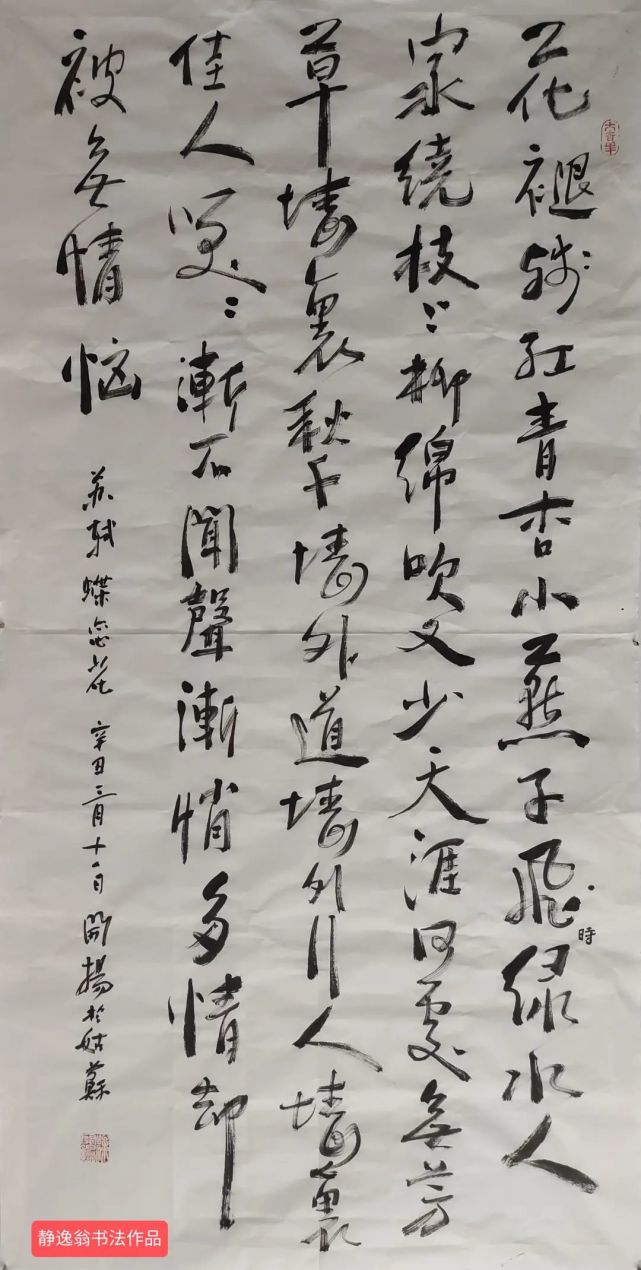 花褪残红青杏小燕子飞绿水人
時
家绕枝上柳绵吹又少天涯何處無芳
草墙裏鞦千墙外道墙外行人墙裏
佳人笑笑漸不聞聲漸悄多情却
被無情恼
苏轼蝶恋花 辛丑三月十一日 開揚於姑蘇
静逸翁书法作品